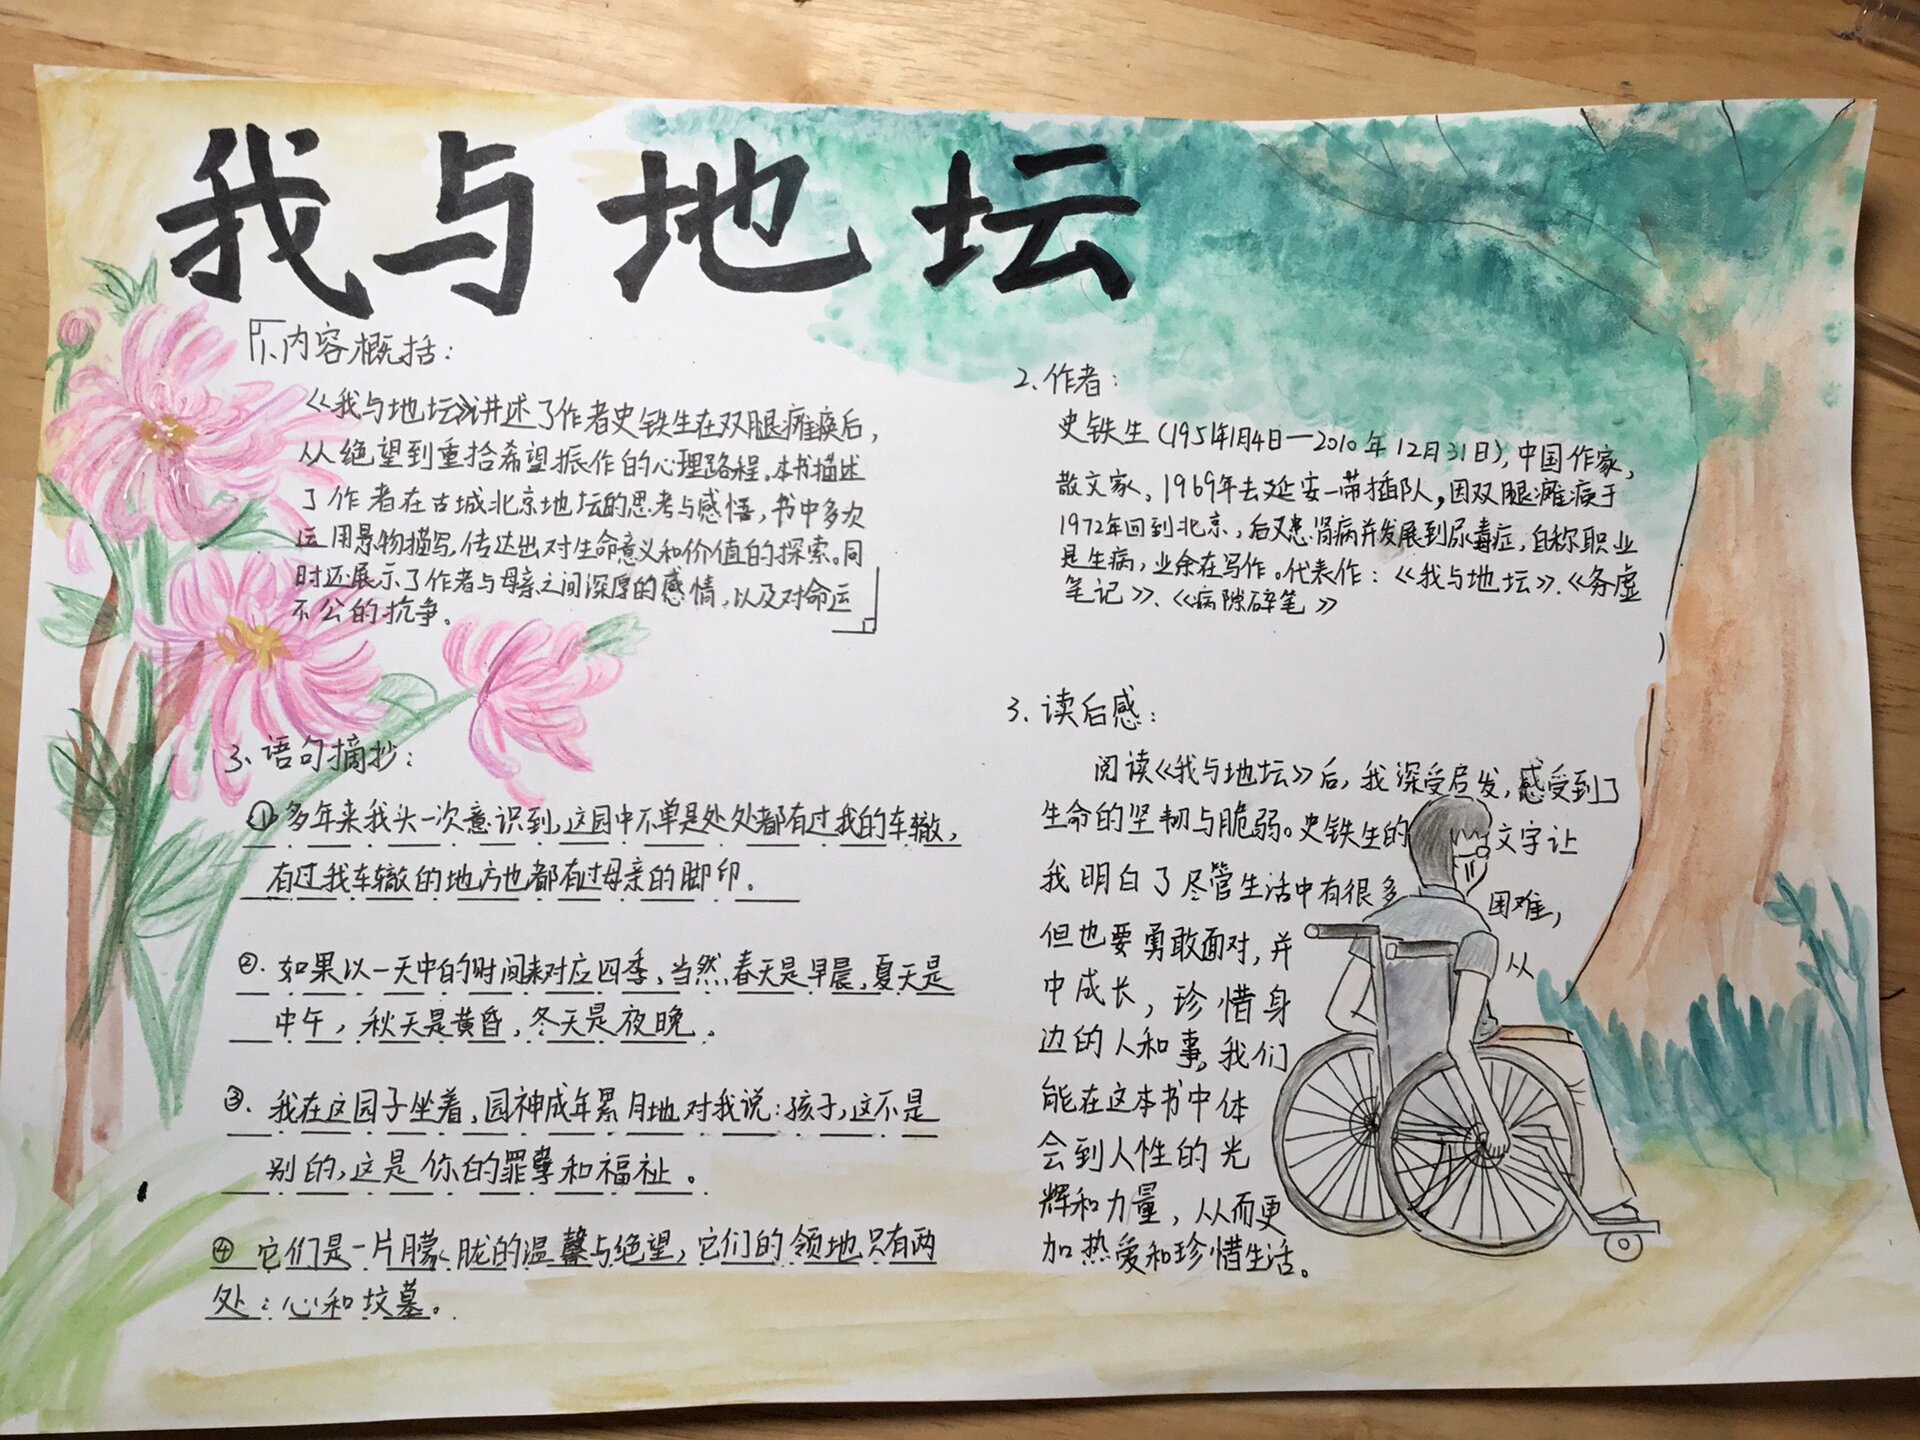 我与地坛
1、内容概括：
《我与地坛》讲述了作者史铁生在双腿瘫痪后，
从绝望到重拾希望振作的心理路程。本书描述
了作者在古城北京地坛的思考与感悟，书中多次
运用景物描写，传达出对生命意义和价值的探索。同
时还展示了作者与母亲之间深厚的感情，以及对命运
不公的抗争。
2、作者：
史铁生（1951年1月4日—2010年12月31日），中国作家，
散文家，1969年去延安一带插队，因双腿瘫痪于
1972年回到北京，后又患肾病并发展到尿毒症，自称职业
是生病，业余在写作。代表作：《我与地坛》、《务虚
笔记》、《病隙碎笔》
3、语句摘抄：
①多年来我头一次意识到，这园中不单是处处都有过我的车辙，
有过我车辙的地方也都有过母亲的脚印。
②．如果以一天中的时间来对应四季，当然春天是早晨，夏天是
中午，秋天是黄昏，冬天是夜晚。
③．我在这园子坐着，园神成年累月地对我说：孩子，这不是
别的，这是你的罪孽和福祉。
④它们是一片朦胧的温馨与绝望，它们的领地只有两
处：心和坟墓。
3、读后感：
阅读《我与地坛》后，我深受启发，感受到了
生命的坚韧与脆弱。史铁生的文字让
我明白了尽管生活中有很多困难，
但也要勇敢面对，并从
中成长，珍惜身
边的人和事。我们
能在这本书中体
会到人性的光
辉和力量，从而更
加热爱和珍惜生活。